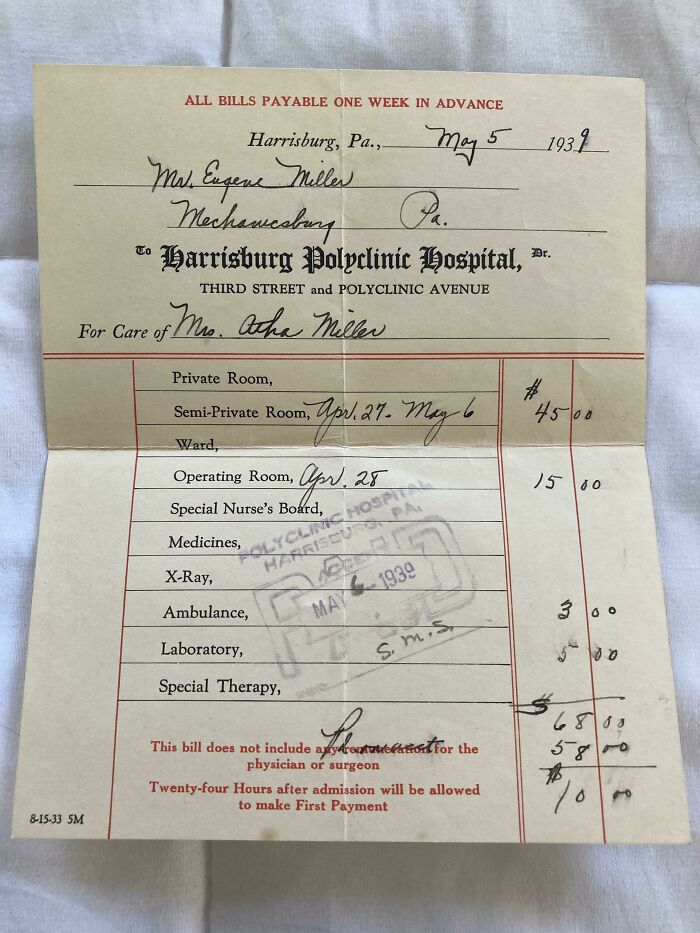 ALL BILLS PAYABLE ONE WEEK IN ADVANCE
Harrisburg, Pa., May 5 1939
Mr. Eugene Miller
Mechanicsburg Pa.
To Harrisburg Polyclinic Hospital, Dr.
THIRD STREET and POLYCLINIC AVENUE
For Care of Mrs. Miller
Private Room,
Semi-Private Room, Apr. 27 - May 6 $45 00
Ward,
Operating Room, Apr. 28 15 00
Special Nurse's Board,
POLYCLINIC HOSPITAL
HARRISBURG, PA.
Medicines,
X-Ray,
MAY 6 1939
Ambulance, 3 00
S.M.S.
Laboratory, 5 00
Special Therapy,
$68 00
58 00
$10 00
This bill does not include any remuneration for the
physician or surgeon
Twenty-four Hours after admission will be allowed
to make First Payment
8-15-33 5M